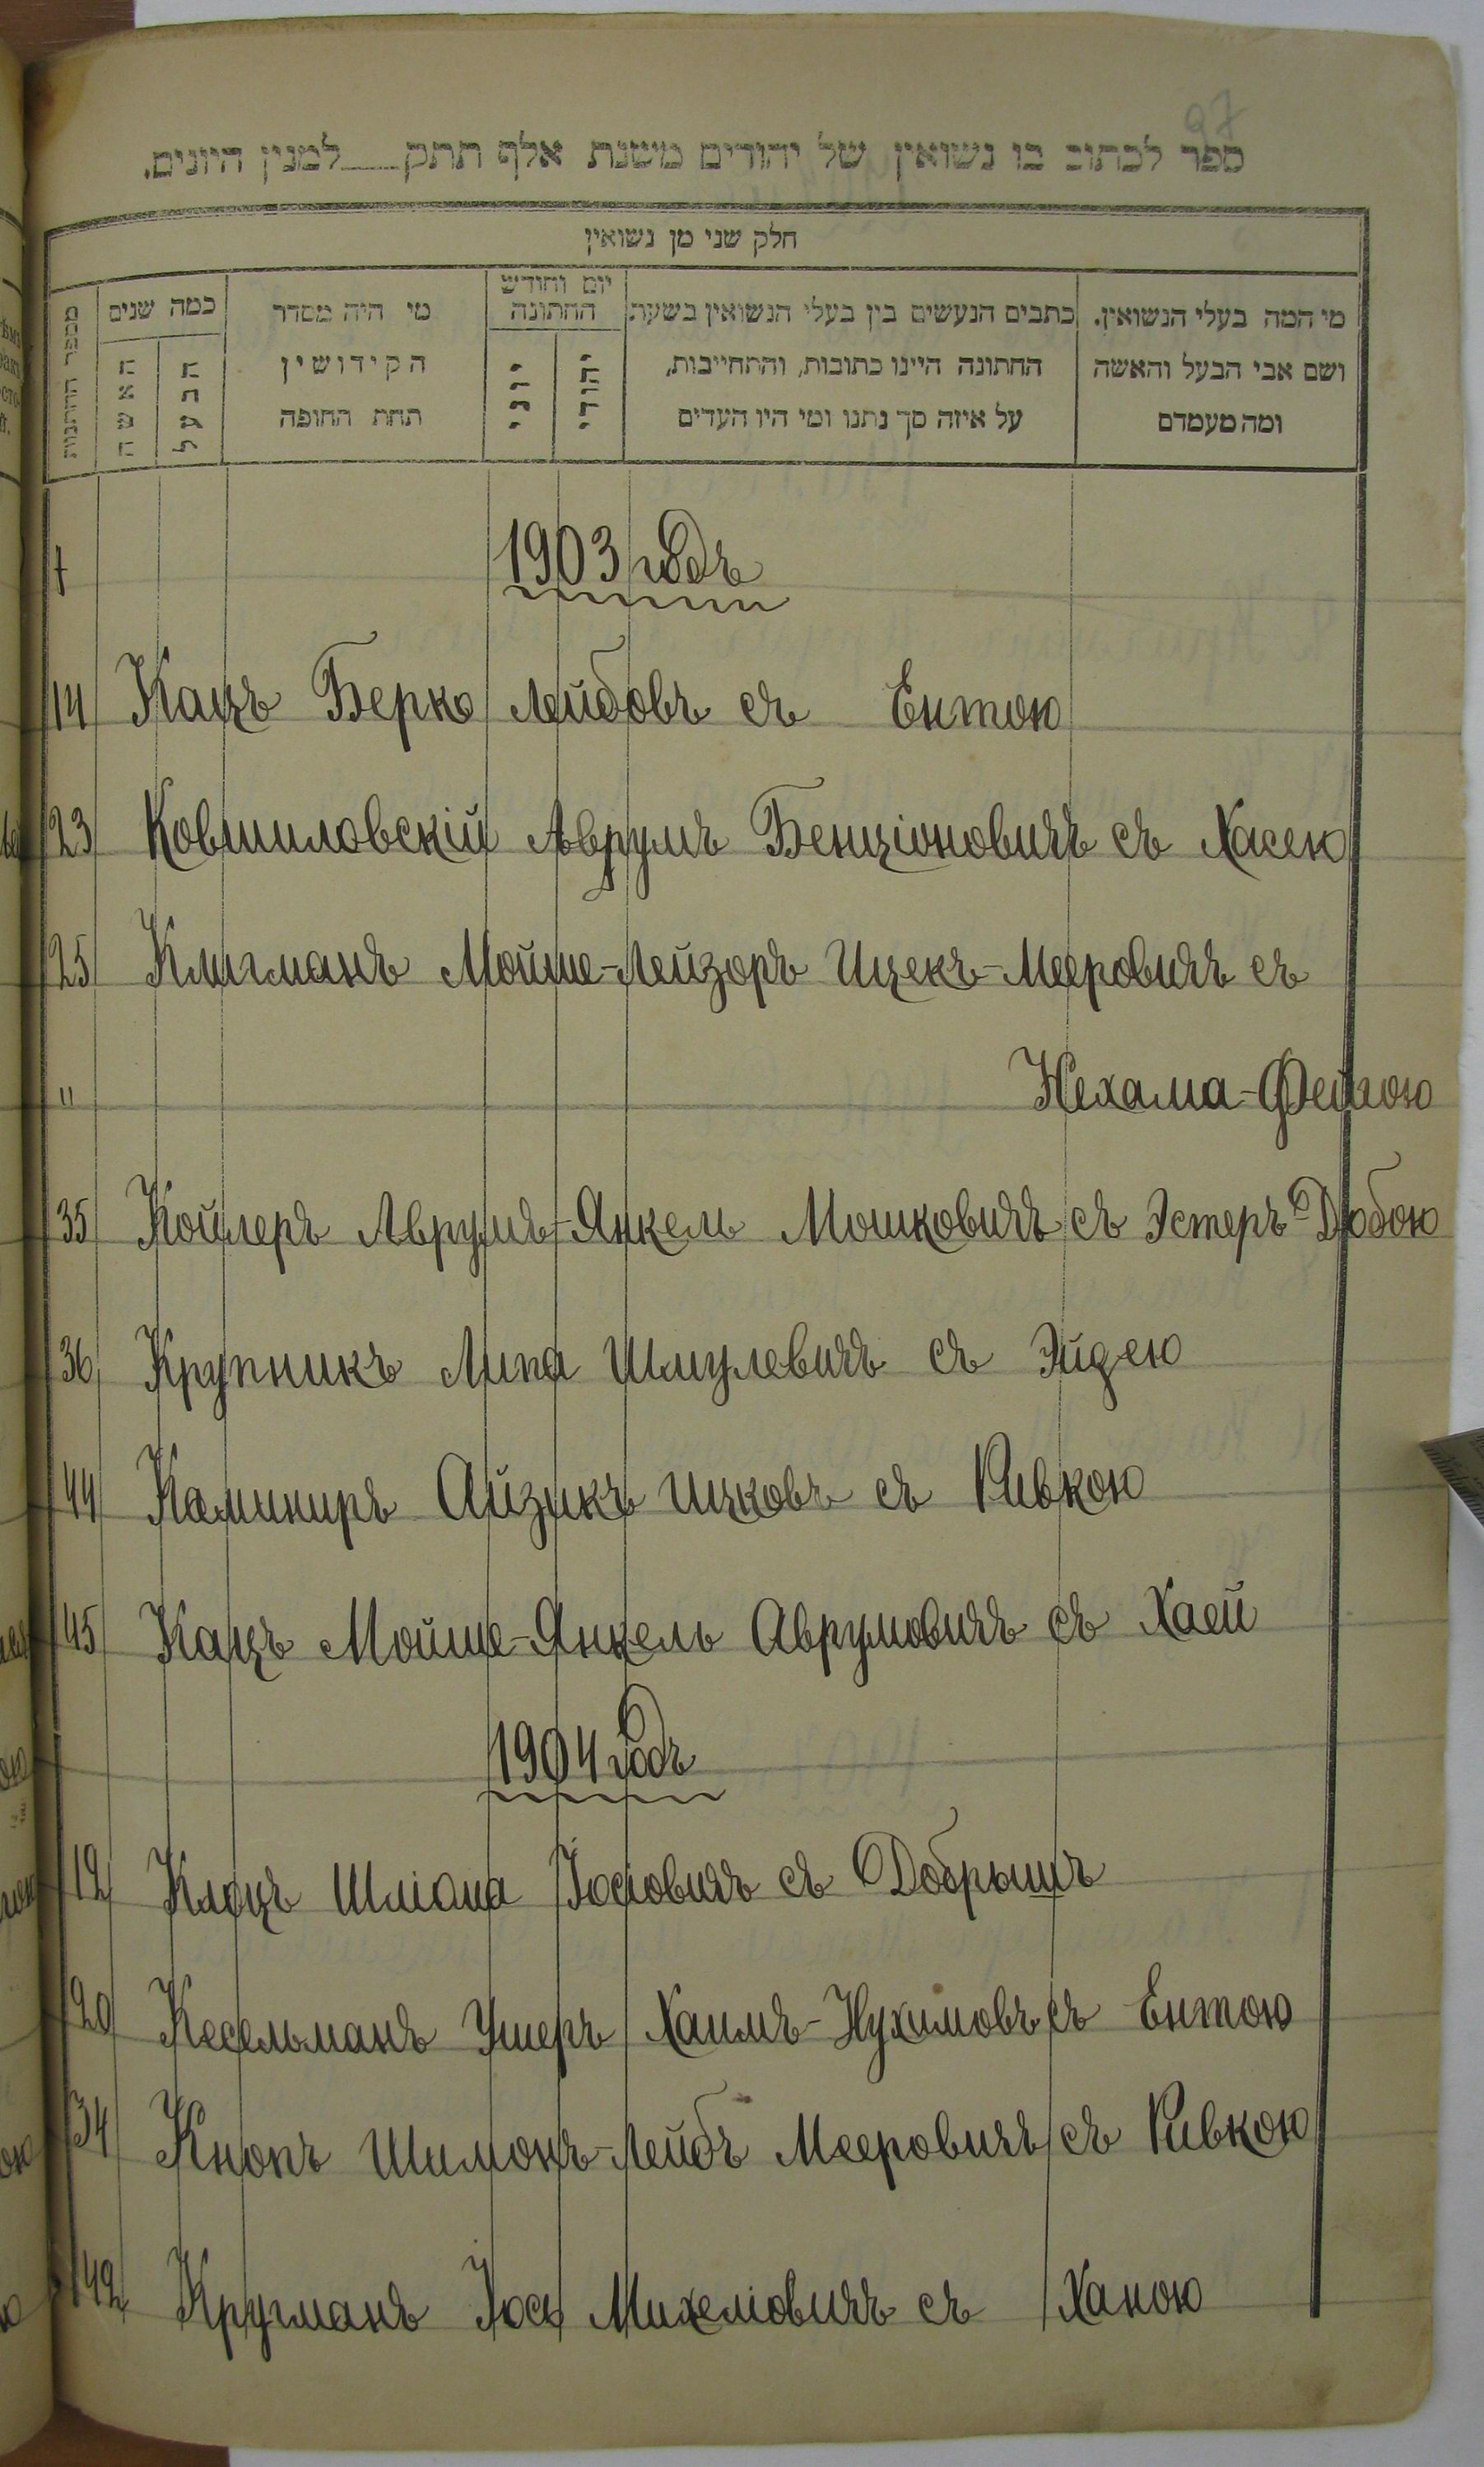 97
ספר לכתוב בו נשואין של יהודים משנת אלף תתק____למנין היונים.
חלק שני מן נשואין
מי המה בעלי הנשואין. ושם אבי הבעל והאשה ומה מעמדם
כתבים הנעשים בין בעלי הנשואין בשעת החתונה היינו כתובות, והתחייבות, על איזה סך נתנו ומי היו העדים
יום וחודש החתונה
יהודי
יוני
מי היה מסדר הקידושין תחת החופה
כמה שנים
הבעל
האשה
מספר החתונות
1903 годъ
14 Кацъ Берко Лейбовъ съ Ентою
23 Ковшиловскій Аврумъ Бенціоновичъ съ Хасею
25 Клигманъ Мойше-Лейзоръ Ицекъ-Меeровичъ съ
" Нехама-Фейгою
35 Койлеръ Аврумъ-Янкель Мошковичъ съ Эстеръ-Добою
36 Крупникъ Липа Шмулевичъ съ Эйдею
44 Каминиръ Айзикъ Ицковъ съ Ривкою
45 Кацъ Мойше-Янкель Аврумовичъ съ Хаей
1904 годъ
12 Клоцъ Шліома Іосіовичъ съ Добрышъ
20 Кесельманъ Ушеръ Хаимъ-Нухимовъ съ Ентою
34 Кнопъ Шимонъ-Лейбъ Мееровичъ съ Ривкою
42 Кругманъ Іось Михеліовичъ съ Ханою